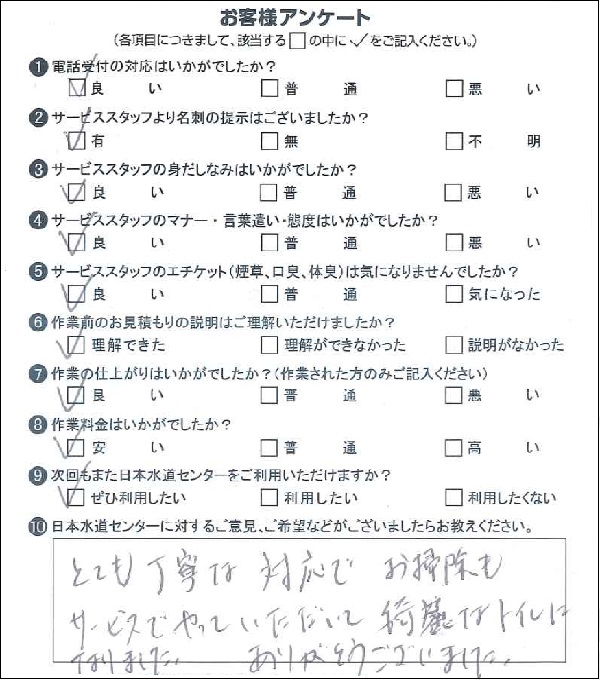 お客様アンケート
(各項目につきまして、該当する□の中に✓をご記入ください。)
❶電話受付の対応はいかがでしたか?
☑良い □普通 □悪い
❷サービススタッフより名刺の提示はございましたか?
☑有 □無 □不明
❸サービススタッフの身だしなみはいかがでしたか?
☑良い □普通 □悪い
❹サービススタッフのマナー・言葉遣い・態度はいかがでしたか?
☑良い □普通 □悪い
❺サービススタッフのエチケット(煙草、口臭、体臭)は気になりませんでしたか?
☑良い □普通 □気になった
❻作業前のお見積もりの説明はご理解いただけましたか?
☑理解できた □理解ができなかった □説明がなかった
❼作業の仕上がりはいかがでしたか?(作業された方のみご記入ください)
☑良い □普通 □悪い
❽作業料金はいかがでしたか?
☑安い □普通 □高い
❾次回もまた日本水道センターをご利用いただけますか?
☑ぜひ利用したい □利用したい □利用したくない
❿日本水道センターに対するご意見、ご希望などがございましたらお教えください。
とても丁寧な対応でお掃除も
サービスでやっていただいて綺麗なトイレに
なりました。ありがとうございました。